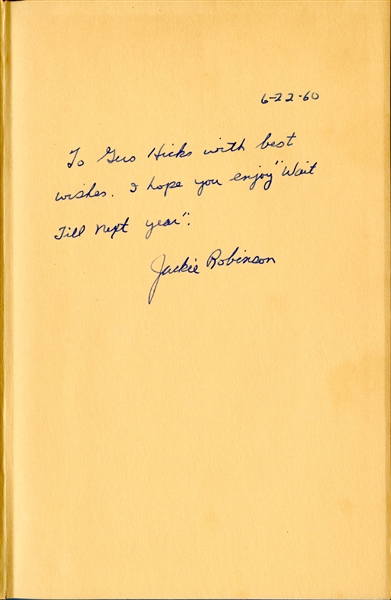 6-22-60
To Gus Hicks with best
wishes. I hope you enjoy "Wait
Till next year".
Jackie Robinson